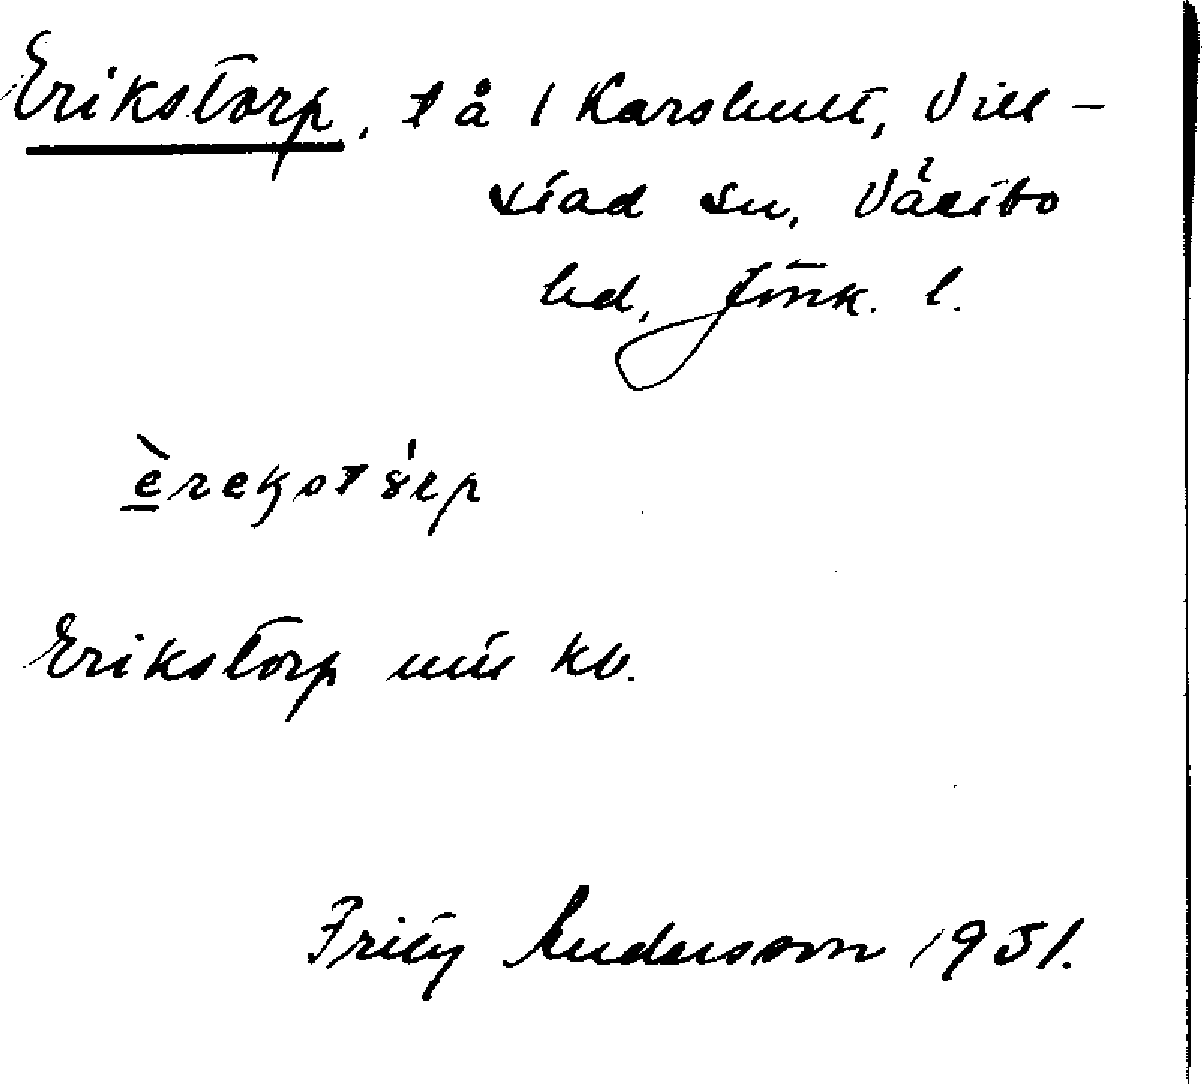 Erikstorp, t å 1 Karshult, Vill-
stad sn, Västbo
hd, Jönk. l.
èrekstórp
Erikstorp mtl kb.
Fritz Andersson 1951.